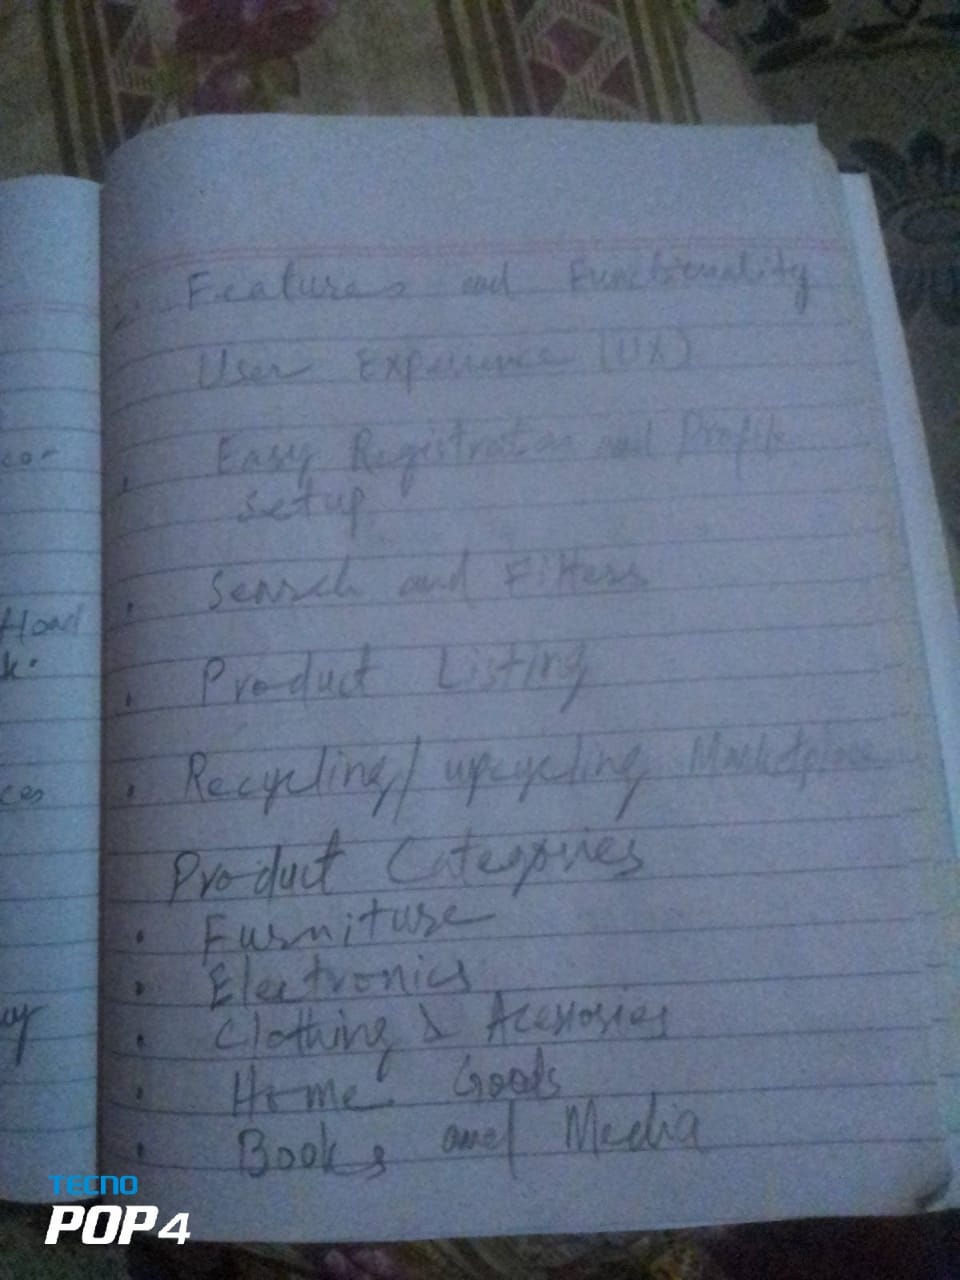 2. Features and Functionality
User Experience (UX)
• Easy Registration and Profile
setup
• Search and Filters
• Product Listing
• Recycling/upcycling Marketplace
Product Categories
• Furniture
• Electronics
• Clothing & Acessosies
• Home Goods
• Books and Media
TECNO
POP 4